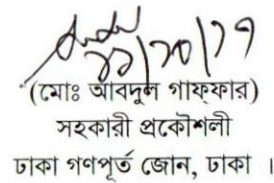 ২২/১০/১৭
(মোঃ আবদুল গাফ্ফার)
সহকারী প্রকৌশলী
ঢাকা গণপূর্ত জোন, ঢাকা ।